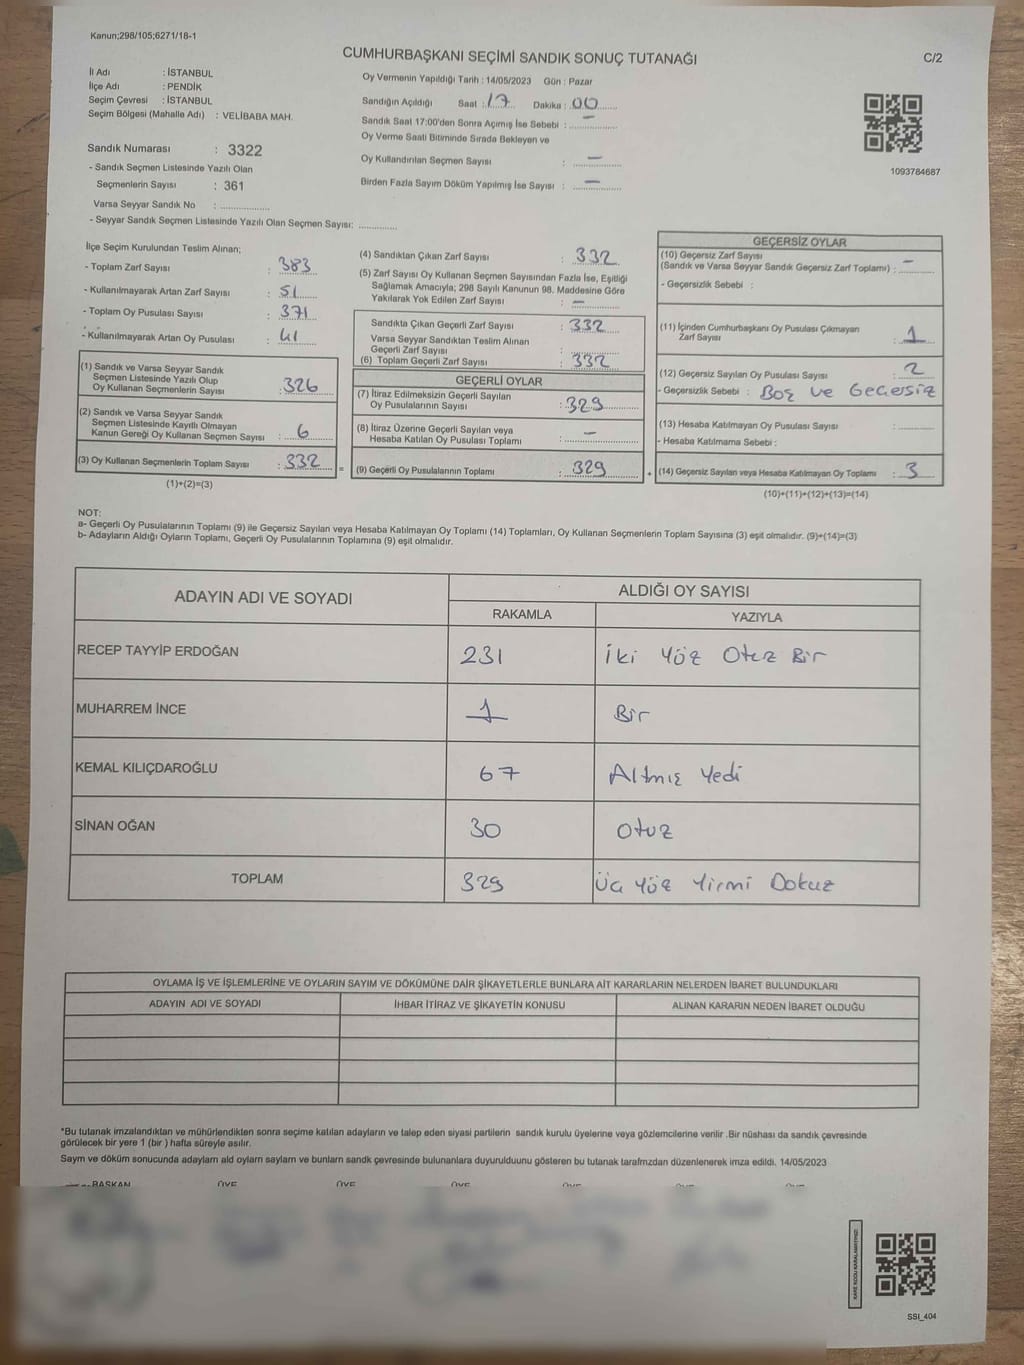 Kanun;298/105;6271/18-1
CUMHURBAŞKANI SEÇİMİ SANDIK SONUÇ TUTANAĞI
C/2
İl Adı : İSTANBUL
İlçe Adı : PENDİK
Seçim Çevresi : İSTANBUL
Seçim Bölgesi (Mahalle Adı) : VELİBABA MAH.
Sandık Numarası : 3322
- Sandık Seçmen Listesinde Yazılı Olan
Seçmenlerin Sayısı : 361
Varsa Seyyar Sandık No : ................
- Seyyar Sandık Seçmen Listesinde Yazılı Olan Seçmen Sayısı: ............
Oy Vermenin Yapıldığı Tarih : 14/05/2023 Gün : Pazar
Sandığın Açıldığı Saat : 17 Dakika : 00
Sandık Saat 17:00'den Sonra Açımış İse Sebebi : —
Oy Verme Saati Bitiminde Sırada Bekleyen ve
Oy Kullandırılan Seçmen Sayısı : —
Birden Fazla Sayım Döküm Yapılmış İse Sayısı : —
1093784687
İlçe Seçim Kurulundan Teslim Alınan;
- Toplam Zarf Sayısı : 383
- Kullanılmayarak Artan Zarf Sayısı : 51
- Toplam Oy Pusulası Sayısı : 371
- Kullanılmayarak Artan Oy Pusulası : 41
(1) Sandık ve Varsa Seyyar Sandık
Seçmen Listesinde Yazılı Olup
Oy Kullanan Seçmenlerin Sayısı : 326
(2) Sandık ve Varsa Seyyar Sandık
Seçmen Listesinde Kayıtlı Olmayan
Kanun Gereği Oy Kullanan Seçmen Sayısı : 6
(3) Oy Kullanan Seçmenlerin Toplam Sayısı : 332
=
(1)+(2)=(3)
(4) Sandıktan Çıkan Zarf Sayısı : 332
(5) Zarf Sayısı Oy Kullanan Seçmen Sayısından Fazla İse, Eşitliği
Sağlamak Amacıyla; 298 Sayılı Kanunun 98. Maddesine Göre
Yakılarak Yok Edilen Zarf Sayısı : —
Sandıkta Çıkan Geçerli Zarf Sayısı : 332
Varsa Seyyar Sandıktan Teslim Alınan
Geçerli Zarf Sayısı :
(6) Toplam Geçerli Zarf Sayısı : 332
GEÇERLİ OYLAR
(7) İtiraz Edilmeksizin Geçerli Sayılan
Oy Pusulalarının Sayısı : 329
(8) İtiraz Üzerine Geçerli Sayılan veya
Hesaba Katılan Oy Pusulası Toplamı : —
(9) Geçerli Oy Pusulalarının Toplamı : 329
+
GEÇERSİZ OYLAR
(10) Geçersiz Zarf Sayısı
(Sandık ve Varsa Seyyar Sandık Geçersiz Zarf Toplamı) : —
- Geçersizlik Sebebi :
(11) İçinden Cumhurbaşkanı Oy Pusulası Çıkmayan
Zarf Sayısı : 1
(12) Geçersiz Sayılan Oy Pusulası Sayısı : 2
- Geçersizlik Sebebi : Boş ve Geçersiz
(13) Hesaba Katılmayan Oy Pusulası Sayısı :
- Hesaba Katılmama Sebebi :
(14) Geçersiz Sayılan veya Hesaba Katılmayan Oy Toplamı : 3
(10)+(11)+(12)+(13)=(14)
NOT:
a- Geçerli Oy Pusulalarının Toplamı (9) ile Geçersiz Sayılan veya Hesaba Katılmayan Oy Toplamı (14) Toplamları, Oy Kullanan Seçmenlerin Toplam Sayısına (3) eşit olmalıdır. (9)+(14)=(3)
b- Adayların Aldığı Oyların Toplamı, Geçerli Oy Pusulalarının Toplamına (9) eşit olmalıdır.
ADAYIN ADI VE SOYADI
ALDIĞI OY SAYISI
RAKAMLA YAZIYLA
RECEP TAYYİP ERDOĞAN 231 İki Yüz Otuz Bir
MUHARREM İNCE 1 Bir
KEMAL KILIÇDAROĞLU 67 Altmış Yedi
SİNAN OĞAN 30 Otuz
TOPLAM 329 Üç Yüz Yirmi Dokuz
OYLAMA İŞ VE İŞLEMLERİNE VE OYLARIN SAYIM VE DÖKÜMÜNE DAİR ŞİKAYETLERLE BUNLARA AİT KARARLARIN NELERDEN İBARET BULUNDUKLARI
ADAYIN ADI VE SOYADI İHBAR İTİRAZ VE ŞİKAYETİN KONUSU ALINAN KARARIN NEDEN İBARET OLDUĞU
*Bu tutanak imzalandıktan ve mühürlendikten sonra seçime katılan adayların ve talep eden siyasi partilerin sandık kurulu üyelerine veya gözlemcilerine verilir .Bir nüshası da sandık çevresinde
görülecek bir yere 1 (bir ) hafta süreyle asılır.
Saym ve döküm sonucunda adaylarn ald oylarn saylarn ve bunlarn sandk çevresinde bulunanlara duyurulduunu gösteren bu tutanak tarafmzdan düzenlenerek imza edildi. 14/05/2023
BAŞKAN ÜYE ÜYE ÜYE
KARE KODU KARALAMAYINIZ!
SSI_404